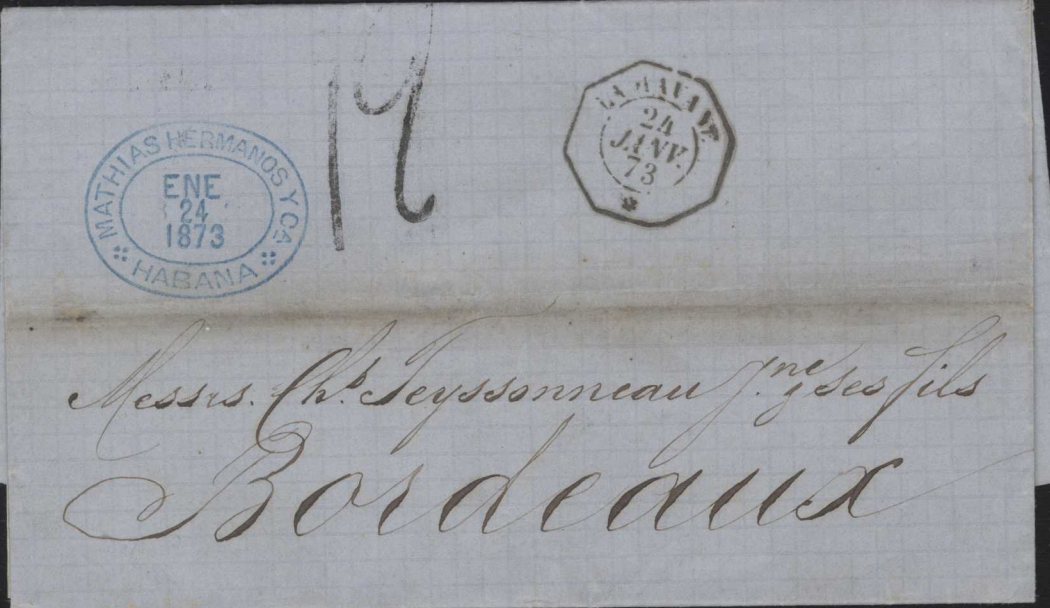 MATHIAS HERMANOS Y CA
ENE
24
1873
HABANA
12
LA HAVANE
24
JANV.
73
Messrs. Chs. Teyssonneau Jne. y ses fils
Bordeaux